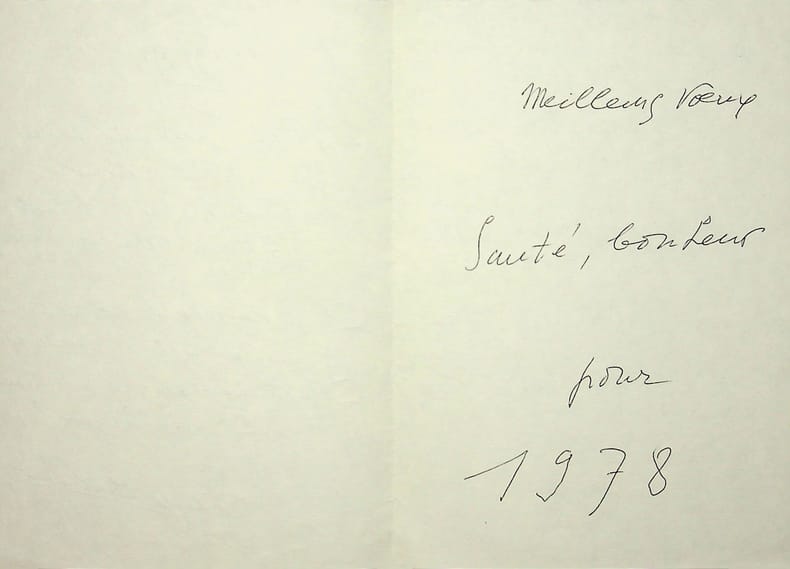 Meilleurs Vœux
Santé, bonheur
pour
1978